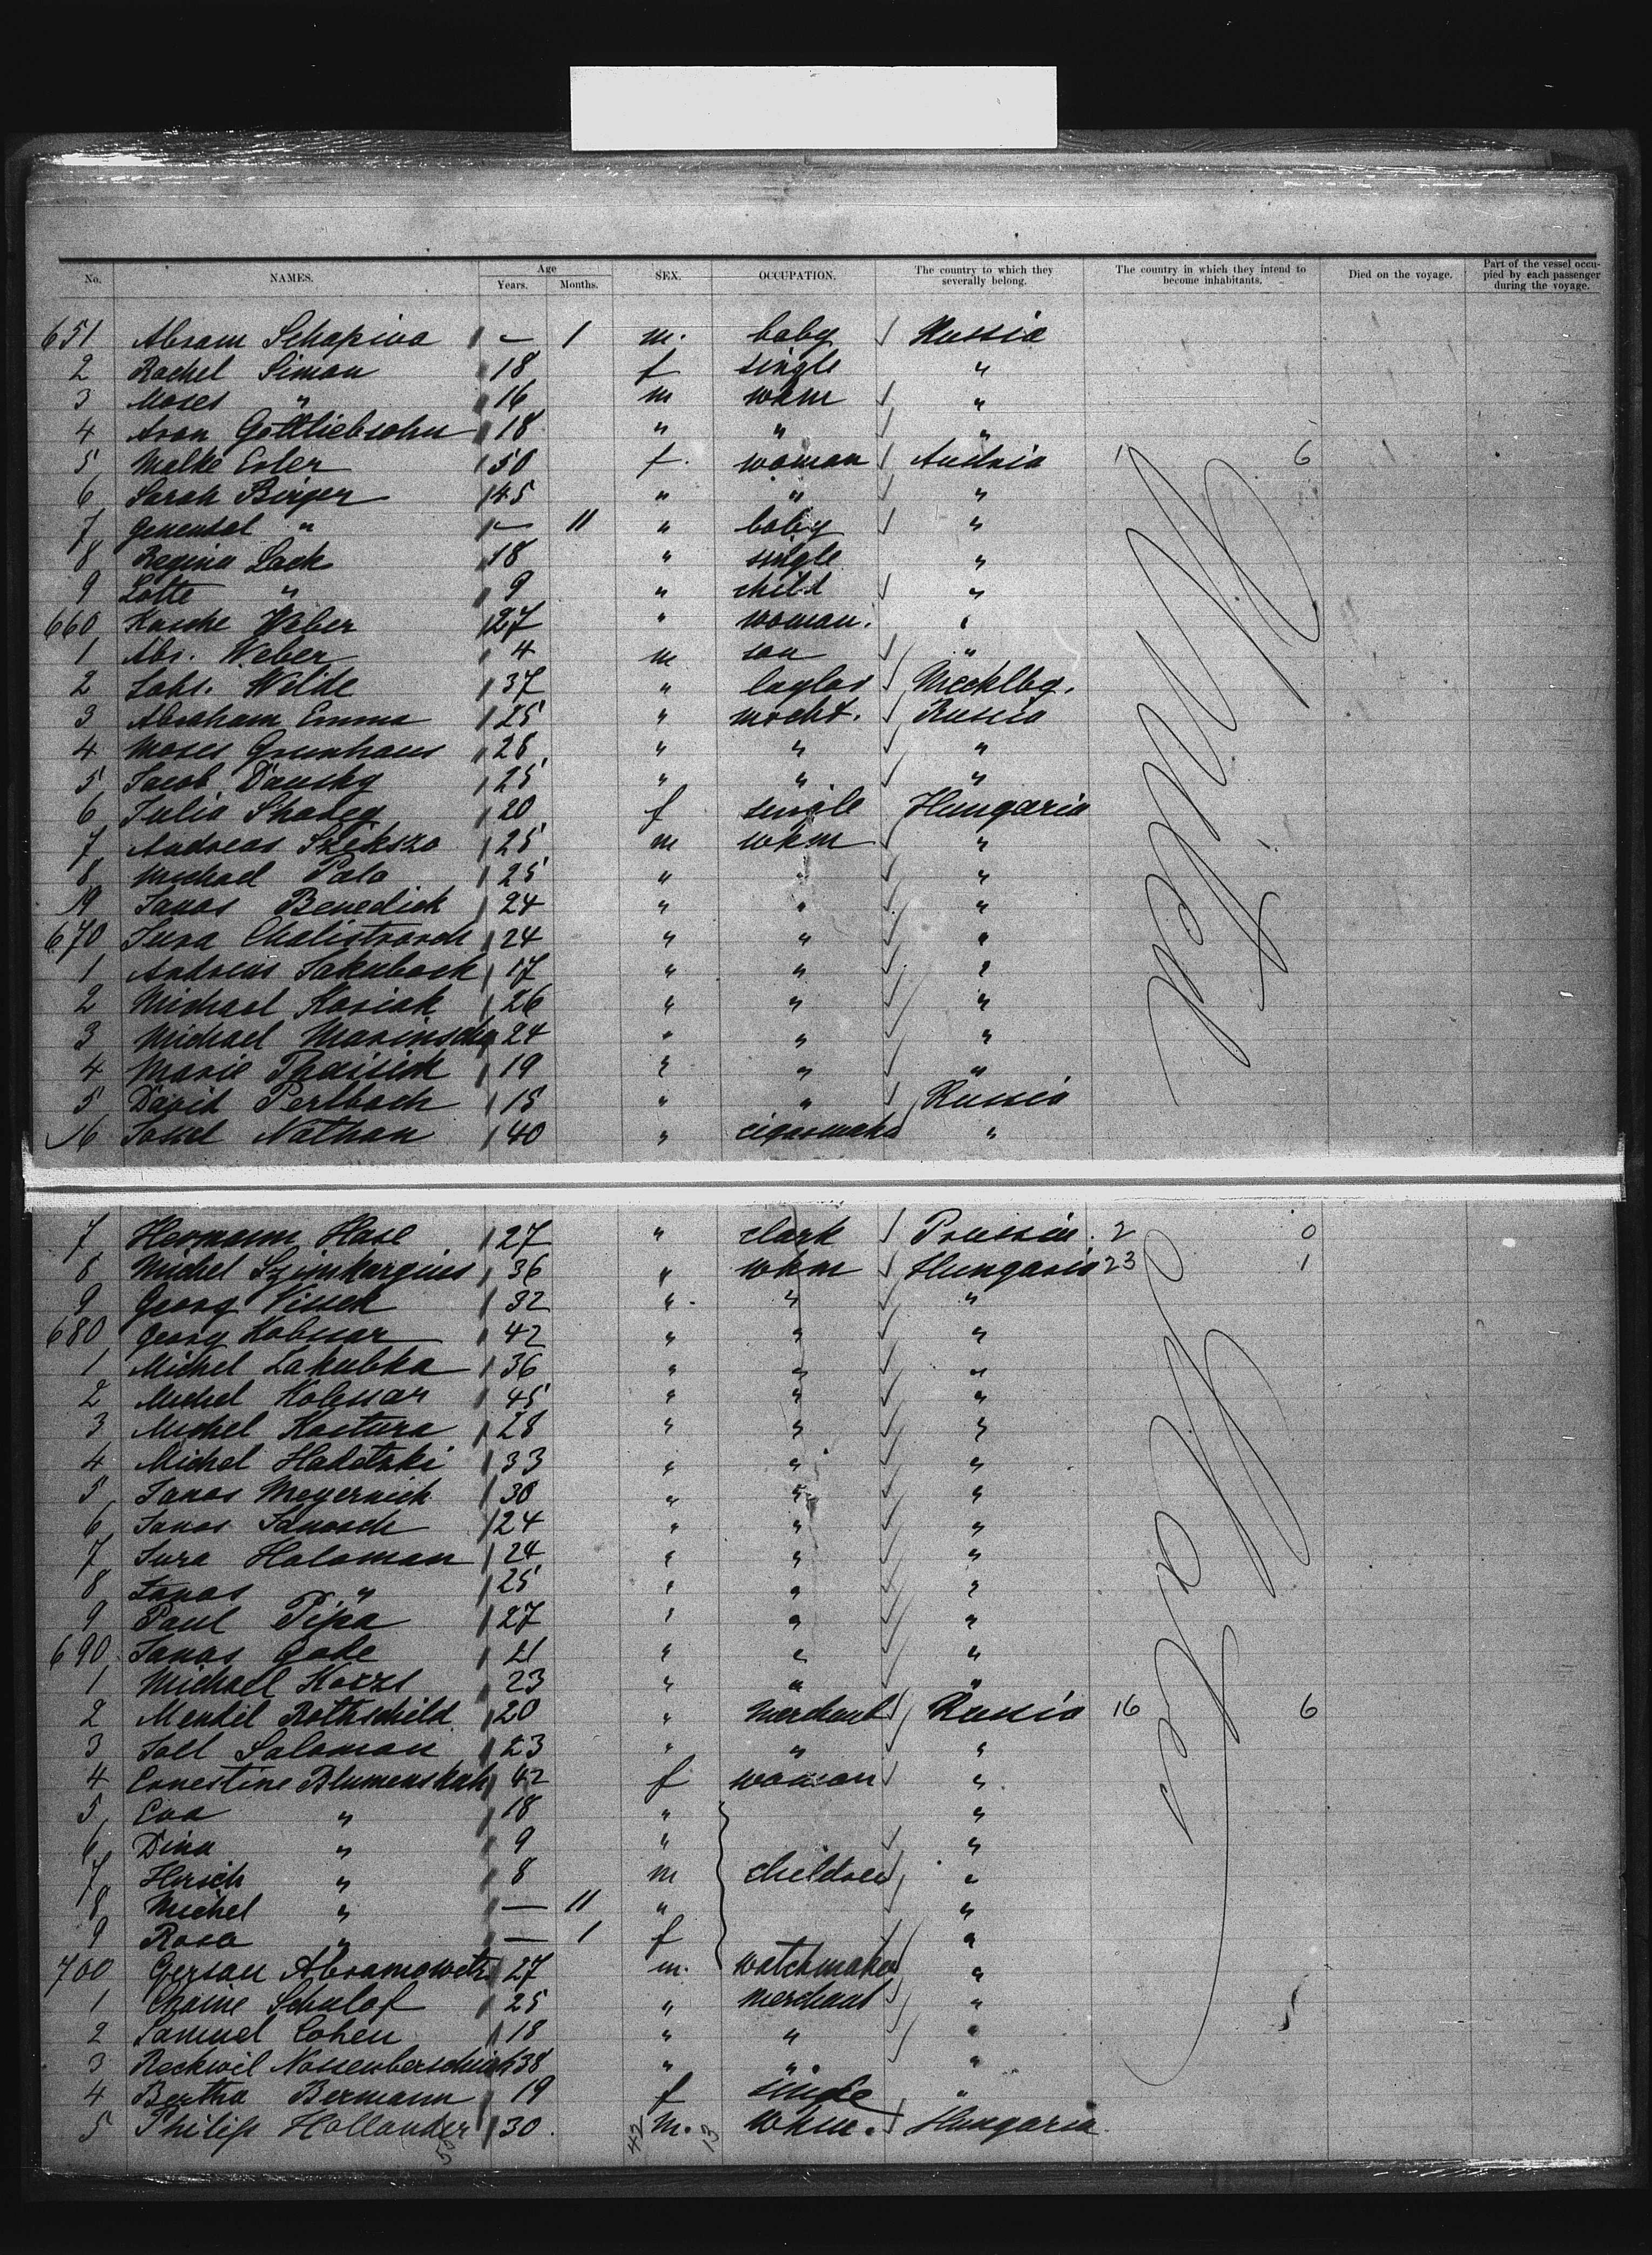 No. NAMES. Age Years. Months. SEX. OCCUPATION. The country to which they severally belong. The country in which they intend to become inhabitants. Died on the voyage. Part of the vessel occupied by each passenger during the voyage.
651 Abram Schapiva — 1 m. baby Russia
2 Rachel Simon 18 f single "
3 Moses " 16 m wkm "
4 Aron Gottliebsohn 18 " " "
5 Malke Erler 50 f. woman Austria 1 6
6 Sarah Birger 45 " " "
7 " — 11 " baby "
8 Regina Lack 18 " single "
9 Lotte " 9 " child "
660 Weber 27 " woman. "
1 Abr. Weber 4 m son "
2 Joh. Wilde 37 " Mecklbg.
3 Abraham Emma 25 " mrcht. Russia
4 Moses Grunhaus 28 " " "
5 Jacob Dansky 25 " " "
6 Julia 20 f single Hungaria
7 Andreas Szikszo 25 m wkm "
8 Michael Palo 25 " " "
9 Janos Benedick 24 " " "
670 Jura 24 " " "
1 Andreas Jakuback 17 " " "
2 Michael Kosiak 26 " " "
3 Michael 24 " " "
4 Marie 19 " " "
5 David Perlbach 18 " " Russia
6 Nathan 40 " cigarmaker "
7 Hermann Hase 27 " clark Prussia. 2 0
8 Michel 36 " wkm Hungaria 23 1
9 Georg Vissek 32 " " "
680 Georg Kobnar 42 " " "
1 Michel Lakubka 36 " " "
2 Michel Kobnar 45 " " "
3 Michel Kostura 28 " " "
4 Michel 33 " " "
5 Janos Meyernick 30 " " "
6 Janos Janosch 24 " " "
7 Jura Holoman 24 " " "
8 Janos " 25 " " "
9 Paul Pipa 27 " " "
690 Janos Gode 21 " " "
1 Michael 23 " " "
2 Mendel Rothschild 20 " Merchant Russia 16 6
3 Soll Salomon 23 " " "
4 Ernestine 42 f woman "
5 Eva " 18 " "
6 Dina " 9 " "
7 Hirsch " 8 m children "
8 Michel " — 11 " "
9 Rosa " — 1 f "
700 Gerson Abramowetz 27 m. watchmaker "
1 Chaine Schulof 25 " merchant "
2 Samuel Cohen 18 " " "
3 38 " " "
4 Bertha Bermann 19 f single "
5 Philip Hollander 30. m. wkm. Hungaria.
42 13